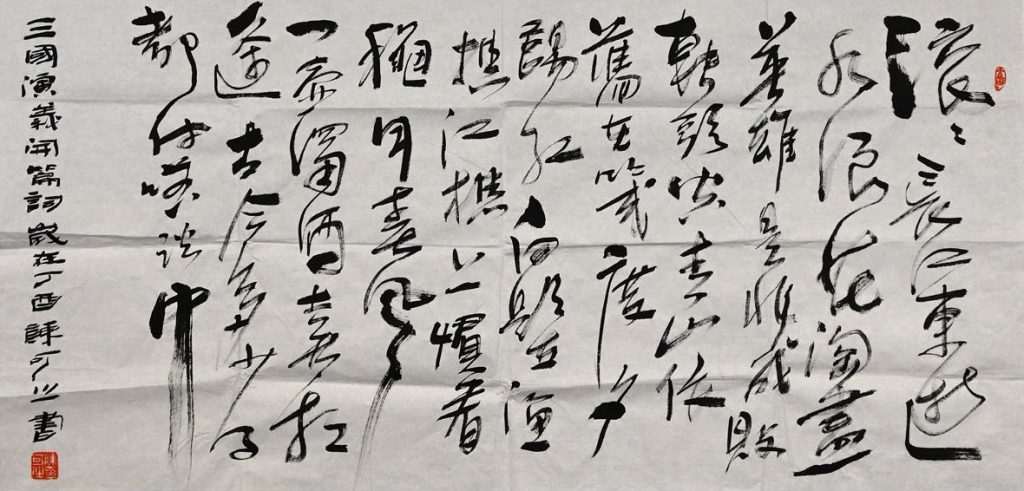 滾〻長江東逝
水浪花淘盡
英雄是非成敗
轉頭空青山依
舊在幾度夕
陽紅白髮漁
樵江樵上慣看
秋月春風
一壺濁酒喜相
逢古今多少事
都付笑談中
三國演義開篇詞歲在丁酉陳可之書